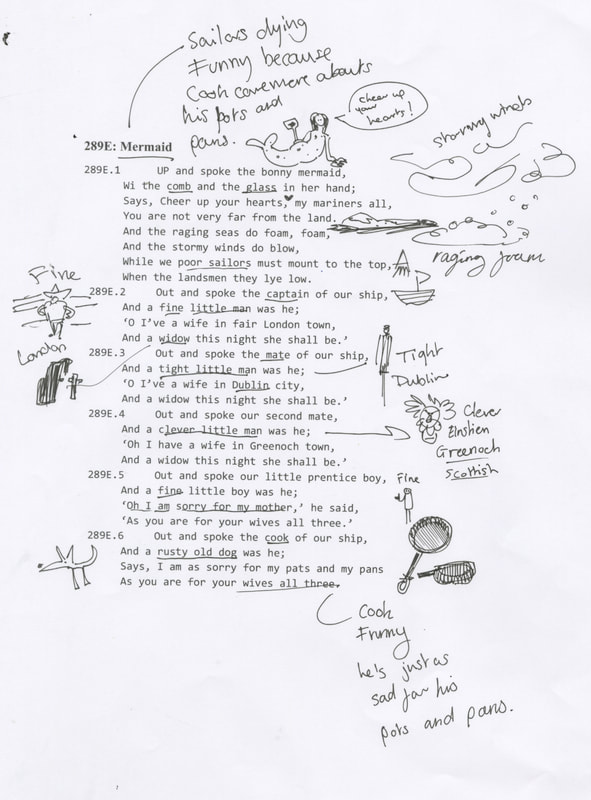 Sailors dying
Funny because
Cook cares more about
his pots and
pans.
cheer up
your
hearts!
stormy winds
289E: Mermaid
289E.1 UP and spoke the bonny mermaid,
Wi the comb and the glass in her hand;
Says, Cheer up your hearts, my mariners all,
You are not very far from the land.
And the raging seas do foam, foam,
And the stormy winds do blow,
While we poor sailors must mount to the top,
When the landsmen they lye low.
raging foam
Fine
289E.2 Out and spoke the captain of our ship,
And a fine little man was he;
‘O I’ve a wife in fair London town,
And a widow this night she shall be.’
London
289E.3 Out and spoke the mate of our ship,
And a tight little man was he;
‘O I’ve a wife in Dublin city,
And a widow this night she shall be.’
Tight
Dublin
289E.4 Out and spoke our second mate,
And a clever little man was he;
‘Oh I have a wife in Greenoch town,
And a widow this night she shall be.’
Clever
Einstien
Greenoch
Scottish
289E.5 Out and spoke our little prentice boy,
And a fine little boy was he;
‘Oh I am sorry for my mother,’ he said,
‘As you are for your wives all three.’
Fine
289E.6 Out and spoke the cook of our ship,
And a rusty old dog was he;
Says, I am as sorry for my pats and my pans
As you are for your wives all three.
Cook
Funny
he's just as
sad for his
pots and pans.